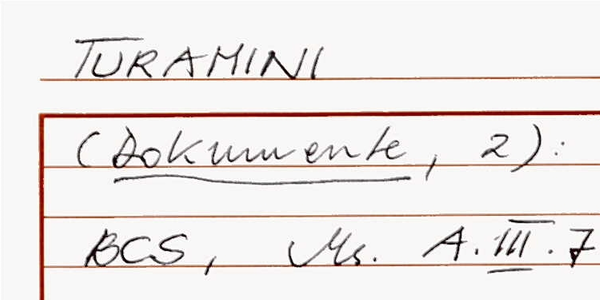 TURAMINI
(Dokumente, 2):
BCS, Ms. A.III.7